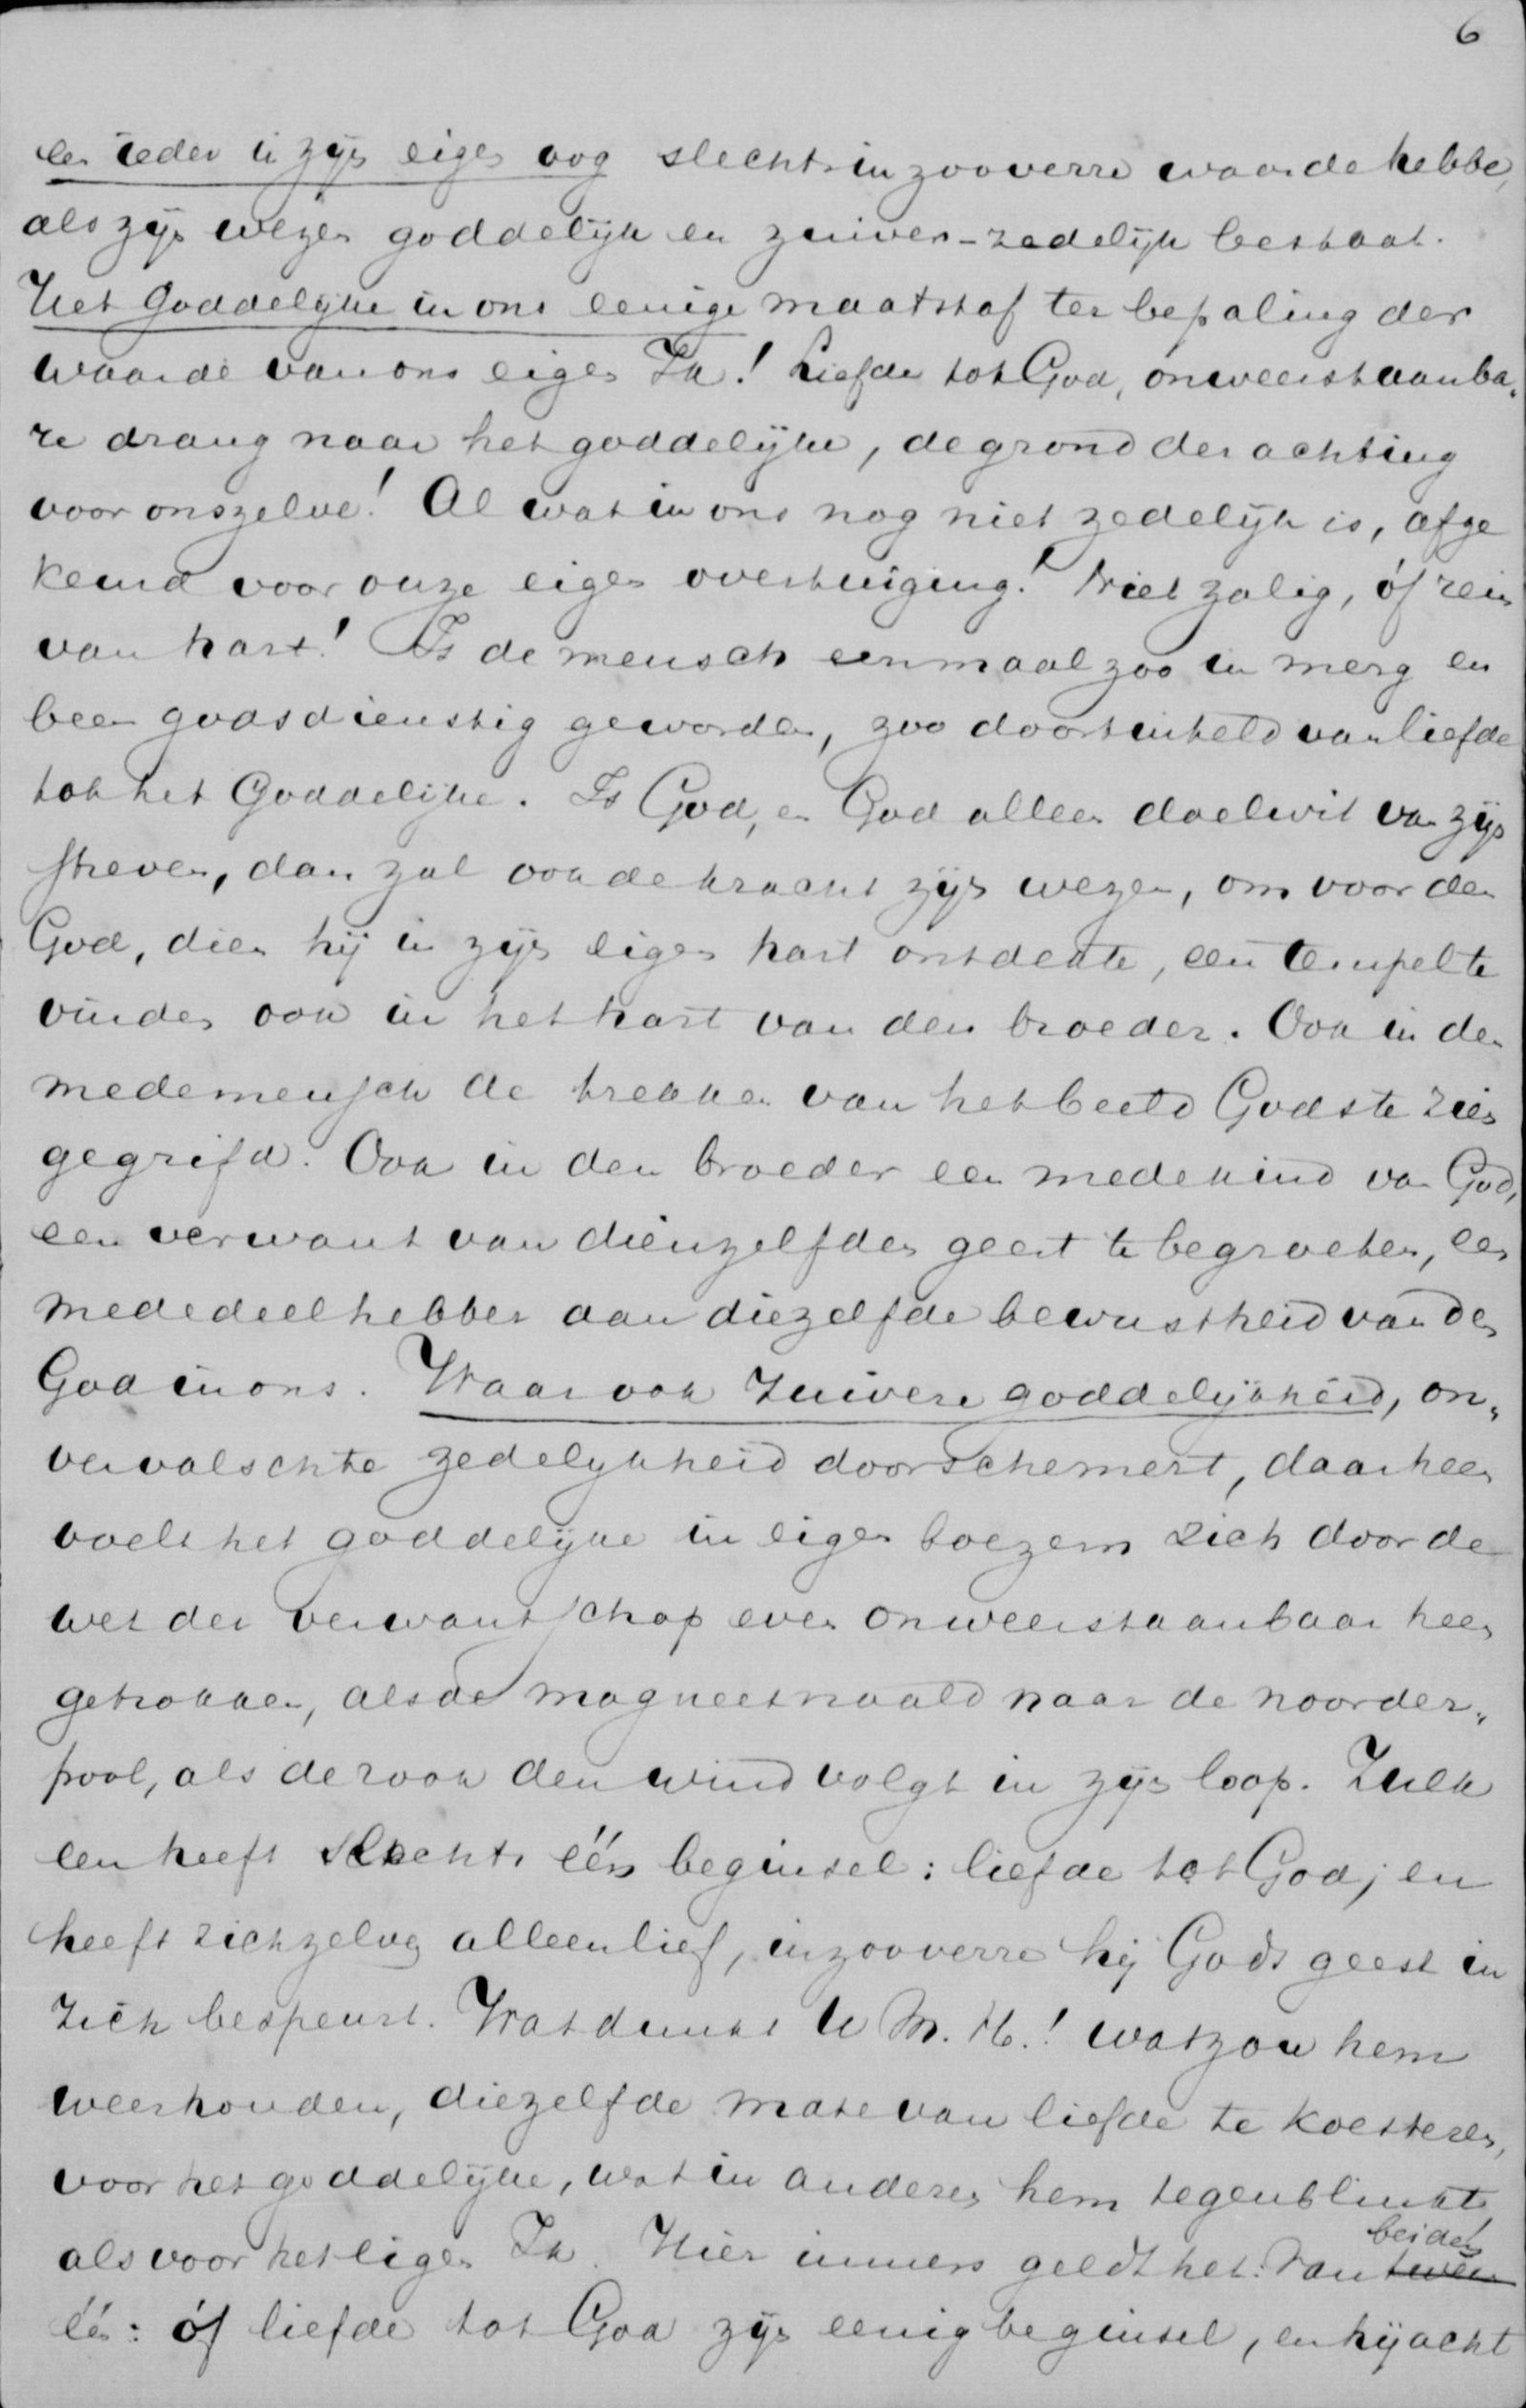 6
en ieder in zijn eigen oog slechts in zooverre waarde hebbe,
als zijn wezen goddelijk en zuiver-zedelijk bestaat.
Het Goddelijke in ons eenige maatstaf ter bepaling der
waarde van ons eigen Ik! Liefde tot God, onweerstaanba„
re drang naar het goddelijke, de grond der achting
voor onszelve! Al wat in ons nog niet zedelijk is, afge
keurd voor onze eigen overtuiging! Niet zalig, óf rein
van hart! Is de mensch eenmaal zoo in merg en
been godsdienstig geworden, zoo doortinteld van liefde
tot het Goddelijke. Is God, en God alleen doelwit van zijn
streven, dan zal ook de kracht zijn wezen, om voor den
God, dien hij in zijn eigen hart ontdekte, een tempel te
vinden ook in het hart van den broeder. Ook in den
medemensch de trekken van het beeld Gods te zien
gegrifd. Ook in den broeder een medekind van God,
een verwant van dienzelfden geest te begroeten, een
mededeelhebber aan diezelfde bewustheid van den
God in ons. Waar ook zuivere goddelijkheid, on„
vervalschte zedelijkheid doorschemert, daarheen
voelt het goddelijke in eigen boezem zich door de
wet der verwantschap even onweerstaanbaar heen
getrokken, als de magneetnaald naar de noorder„
pool, als de rook den wind volgt in zijn loop. Zulk
een heeft slechts één beginsel: liefde tot God; en
heeft zichzelven alleen lief, inzooverre hij Gods geest in
zich bespeurt. Wat dunkt U M. H.! wat zou hem
weerhouden, diezelfde mate van liefde te koesteren,
voor het goddelijke, wat in anderen hem tegenblinkt
als voor het eigen Ik. Hier immers geldt het: Van tween beiden
één: óf liefde tot God zijn eenig beginsel, en hij acht